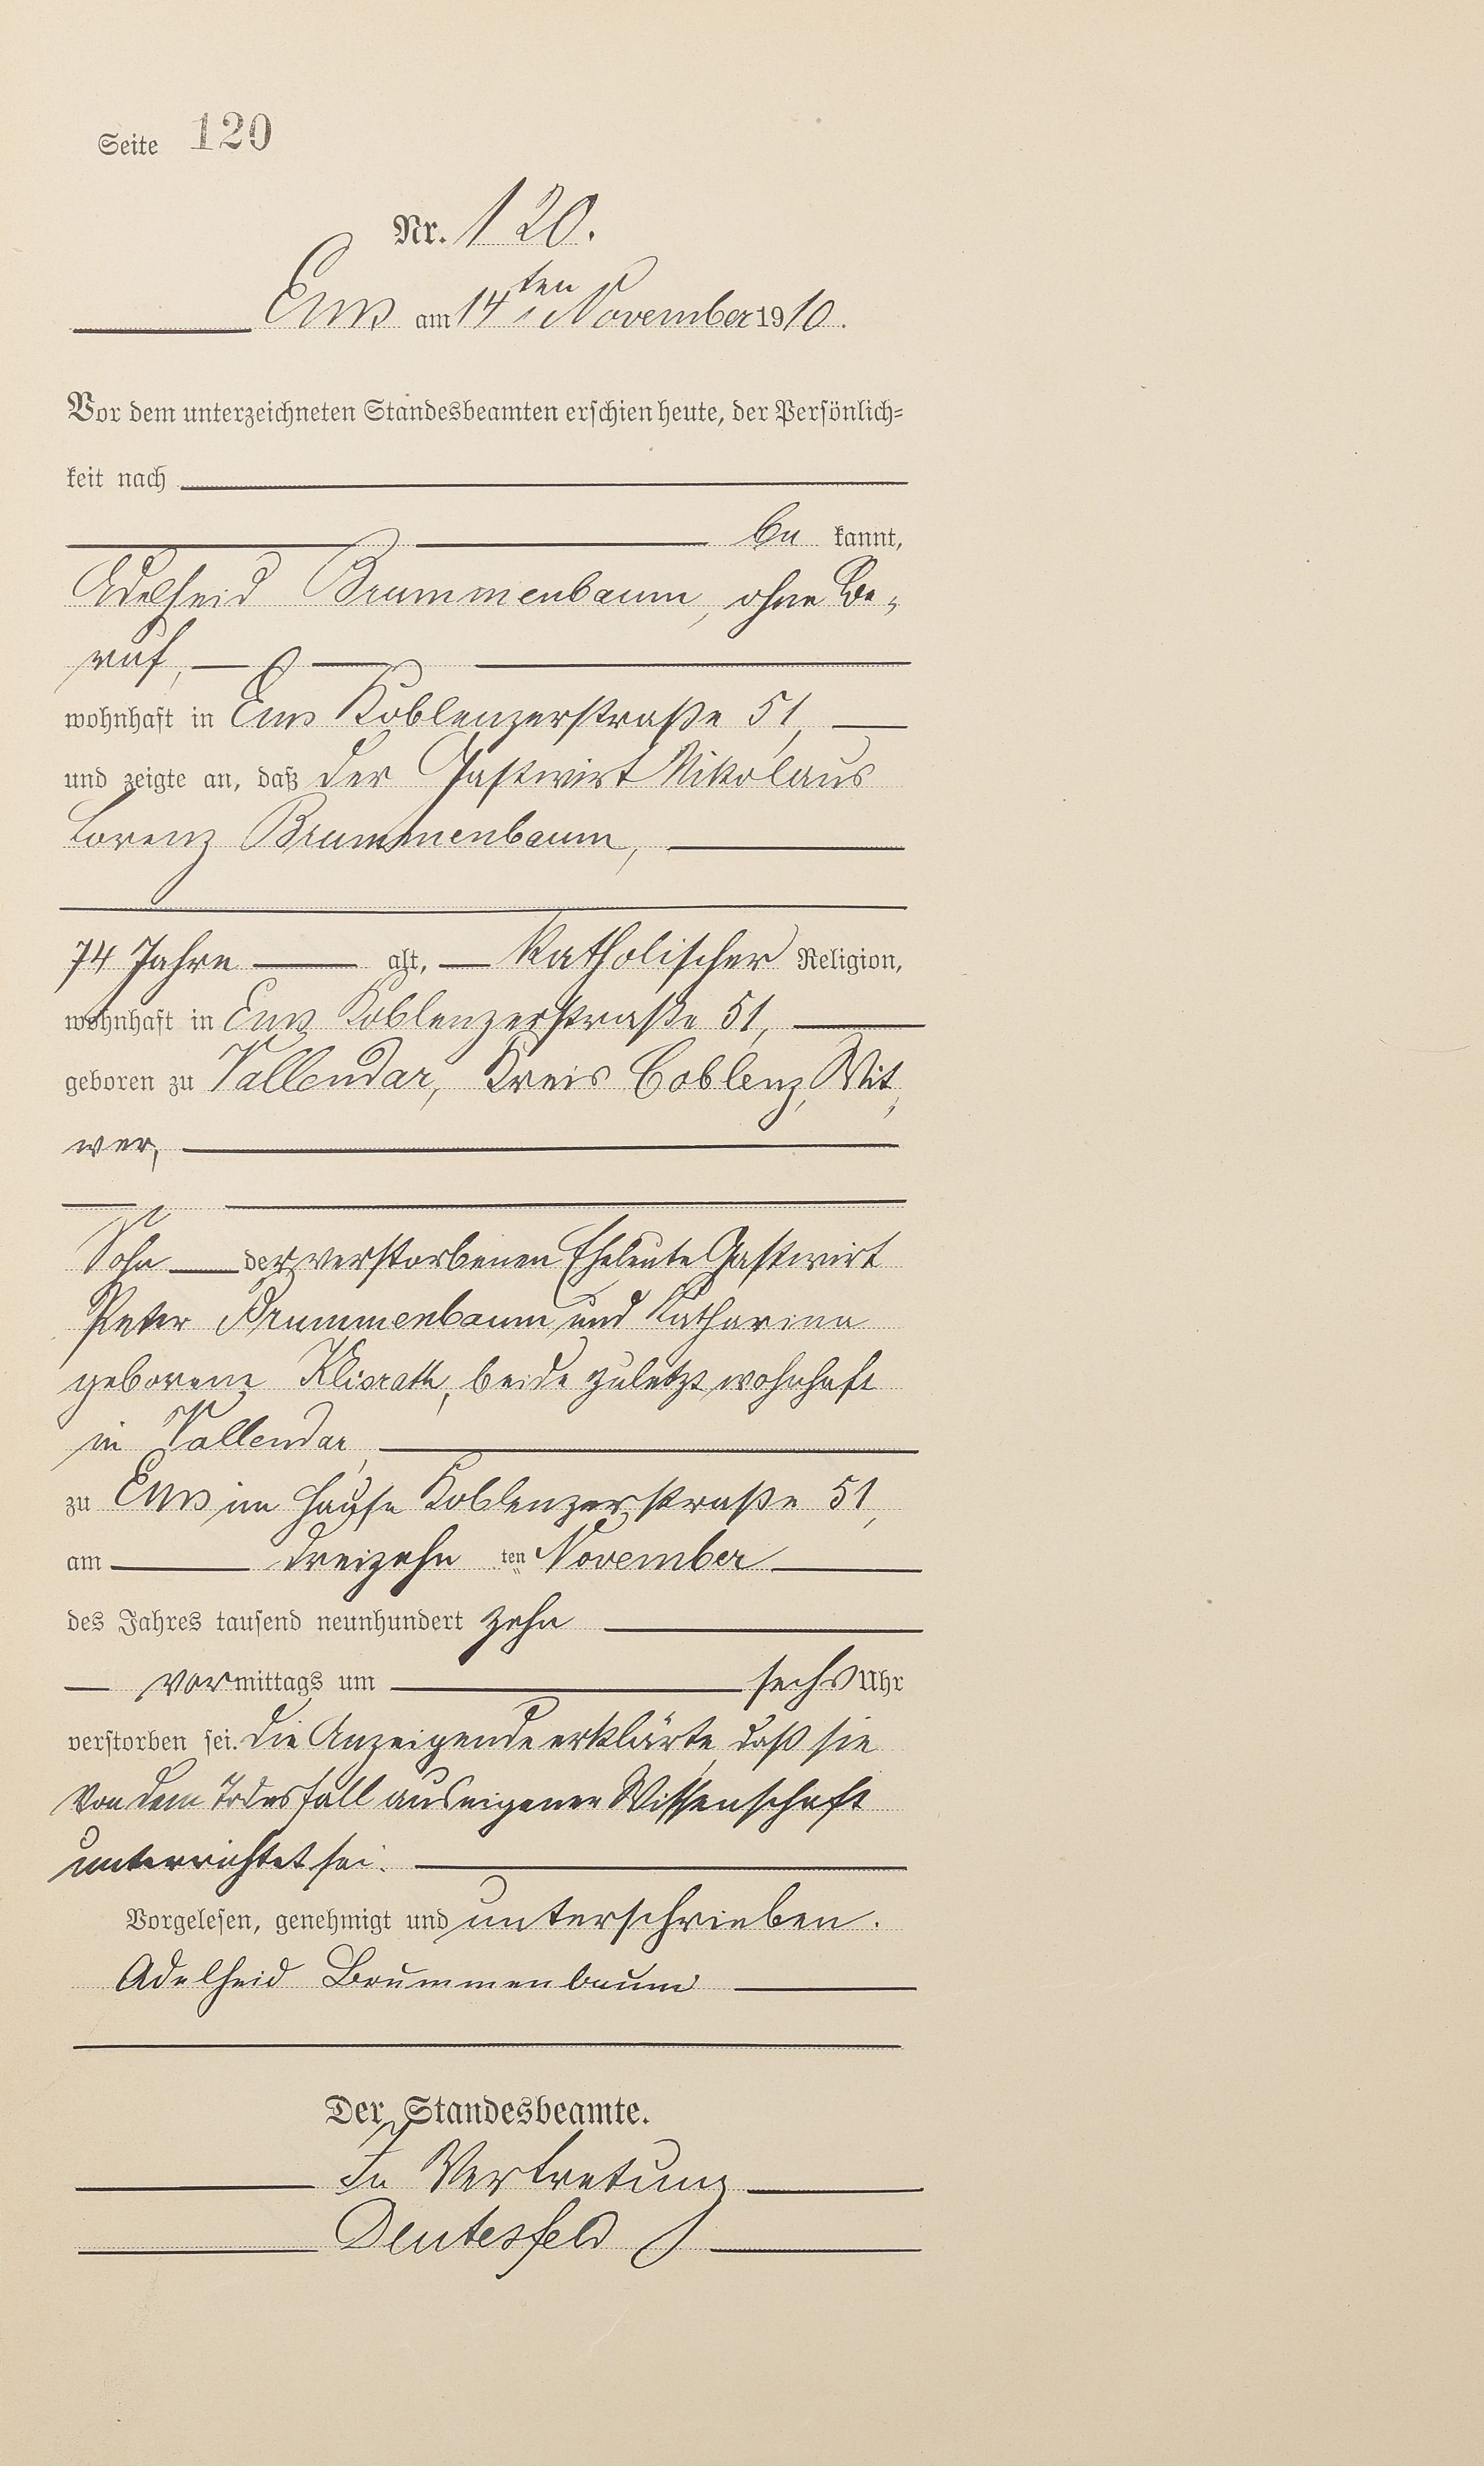 Seite 120
Nr. 120.
Ems am 14ten November 1910.
Vor dem unterzeichneten Standesbeamten erschien heute, der Persönlich=
keit nach
be kannt,
Adelheid Brummenbaum, ohne Be-
ruf,
wohnhaft in Ems Koblenzerstraße 51,
und zeigte an, daß der Gastwirt Nikolaus
Lorenz Brummenbaum,
74 Jahre alt, katholischer Religion,
wohnhaft in Ems Koblenzerstraße 51,
geboren zu Vallendar, Kreis Coblenz, Wit-
wer,
Sohn der verstorbenen Eheleute Gastwirt
Peter Brummenbaum und Katharina
geborene beide zuletzt wohnhaft
in Vallendar,
zu Ems im Hause Koblenzerstraße 51,
am dreizehn ten November
des Jahres tausend neunhundert zehn
vormittags um sechs Uhr
verstorben sei. Die Anzeigende erklärte, daß sie
von dem Todesfall aus eigener Wissenschaft
unterrichtet sei.
Vorgelesen, genehmigt und unterschrieben.
Adelheid Brummenbaum
Der Standesbeamte.
In Vertretung
Deutesfeld